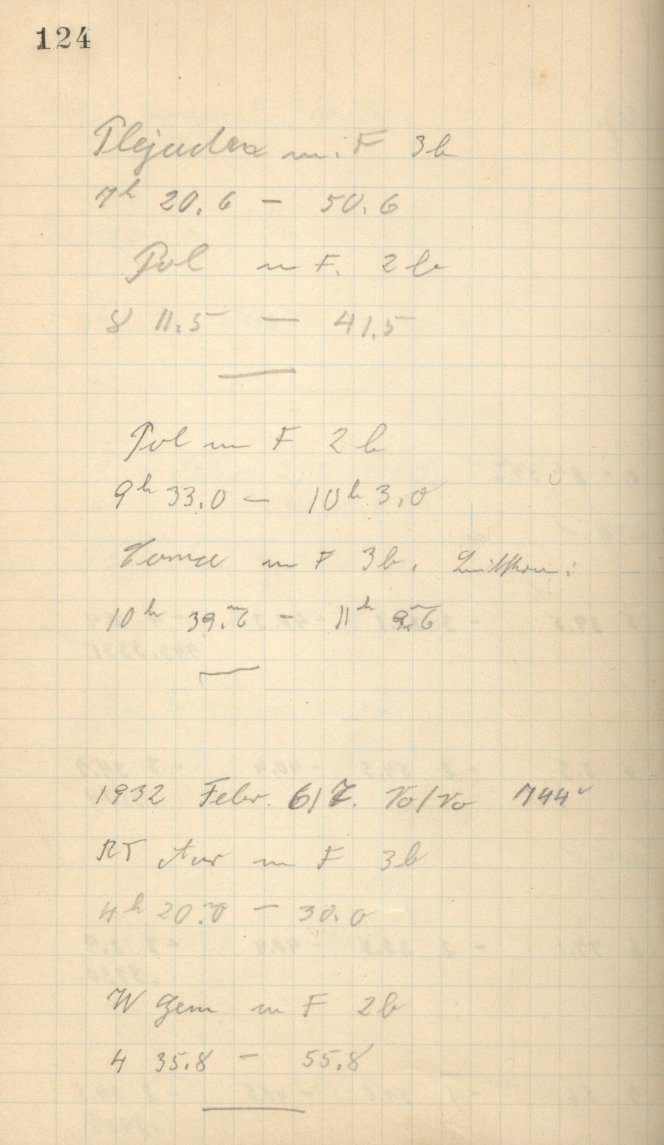 124
Plejaden m. F 3b
7h 20.6 — 50.6
Pol m F. 2b
8 11.5 — 41.5
Pol m F 2b
9h 33.0 — 10h 3.0
m F 3b.
10h 39.m6 — 11h 9.m6
1932 Febr. 6/7. Vo/Vo 744
RT Aur m F 3b
4h 20.m0 — 30.0
W Gem m F 2b
4 35.8 — 55.8